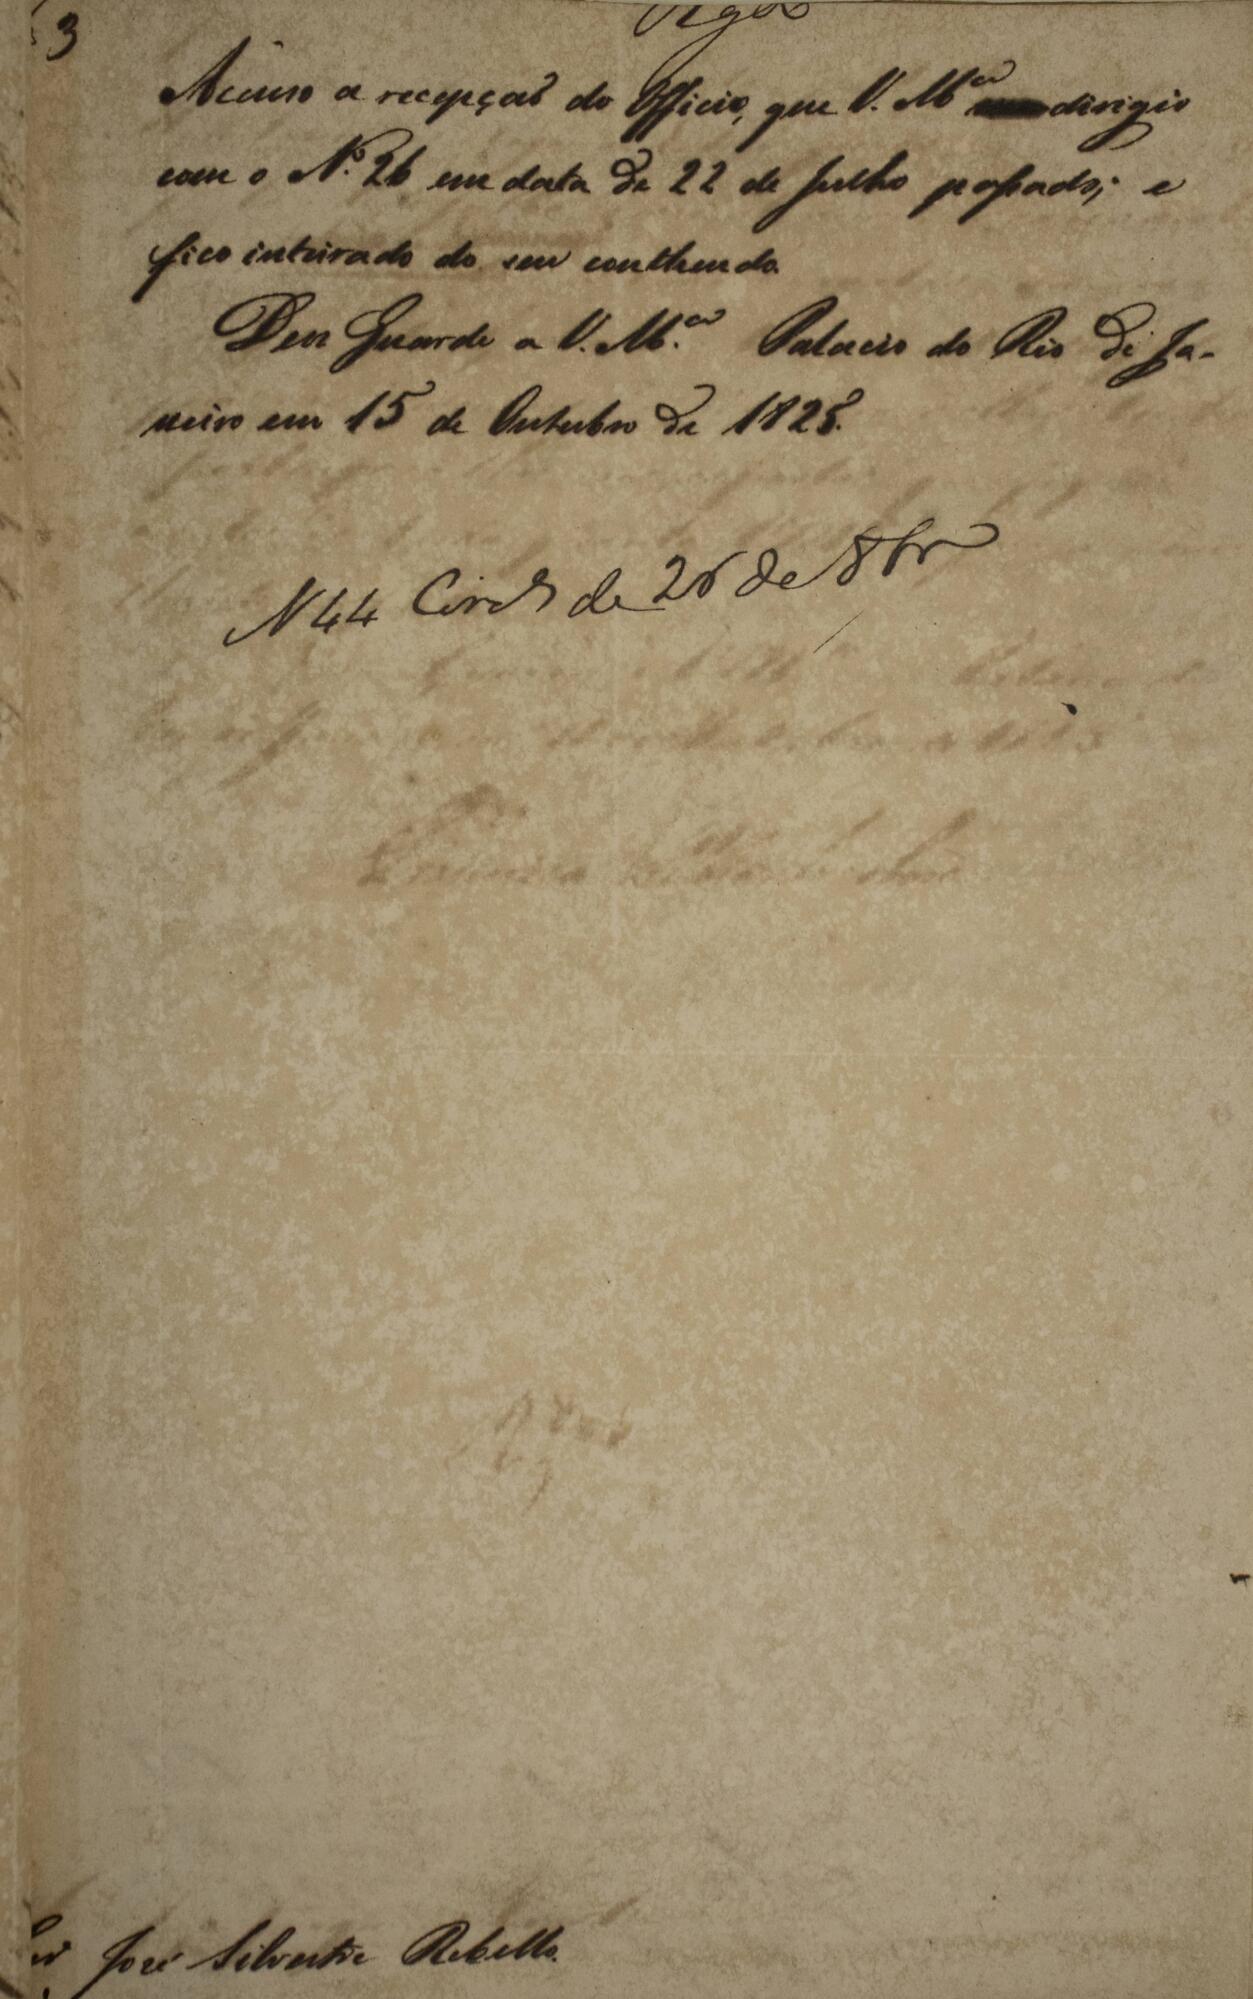 3
Accuso a recepçaõ do Officio, que V. M.ce dirigio
com o N.º 26 em data de 22 de Julho passado; e
fico inteirado do seu conthendo.
Deus Guarde a V. M.ce Palacio do Rio de Ja-
neiro em 15 de Outubro de 1825.
N 44 de 26 de 8br
Snr José Silvestre Rebello.